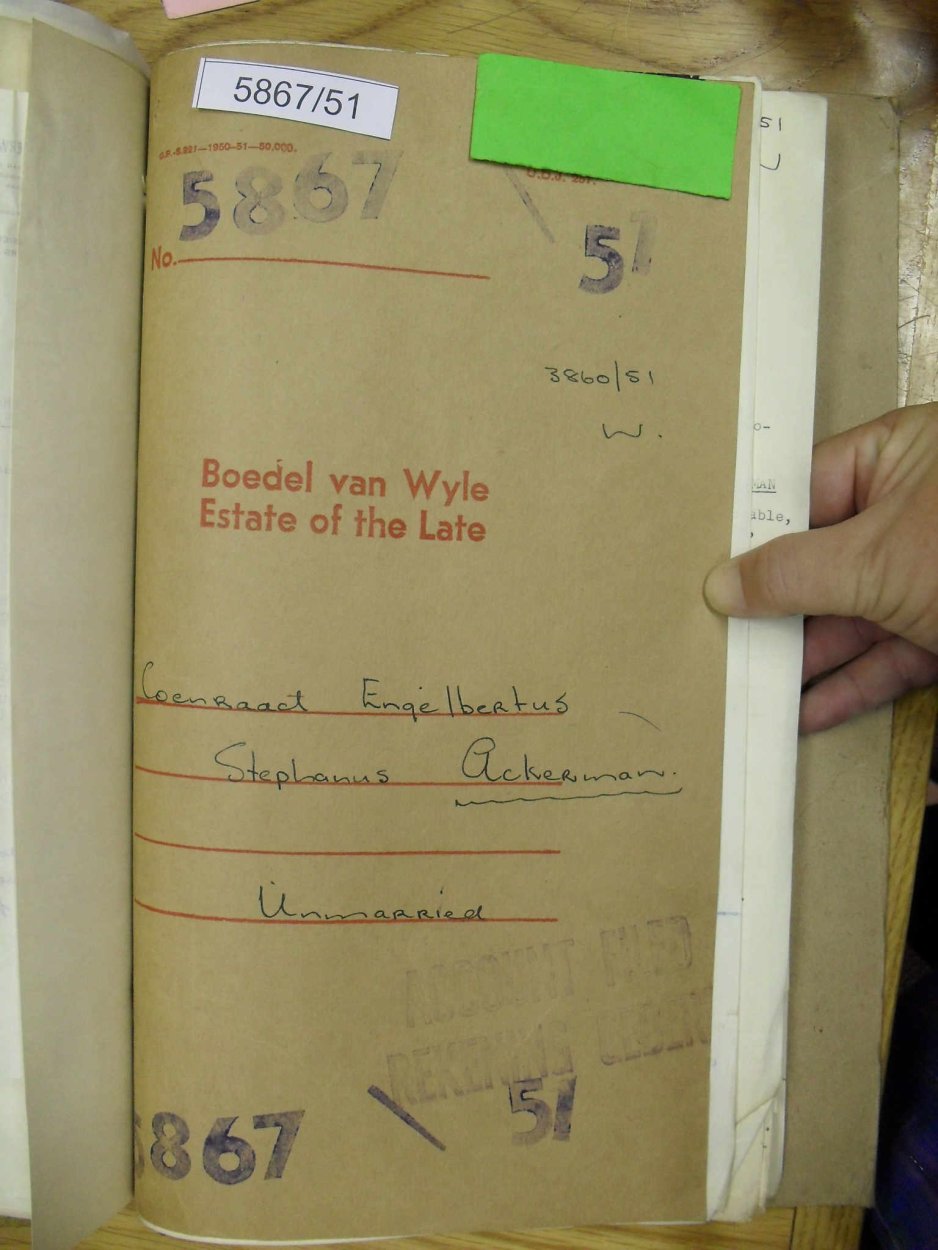 5867/51
G.P.-S.821—1950-51—50,000.
5867 \ 51
No.
3860/51
W.
Boedel van Wyle
Estate of the Late
Coenraad Engelbertus
Stephanus Ackerman.
Unmarried
ACCOUNT FILED
REKENING
867 \ 51
51
MAN
able,